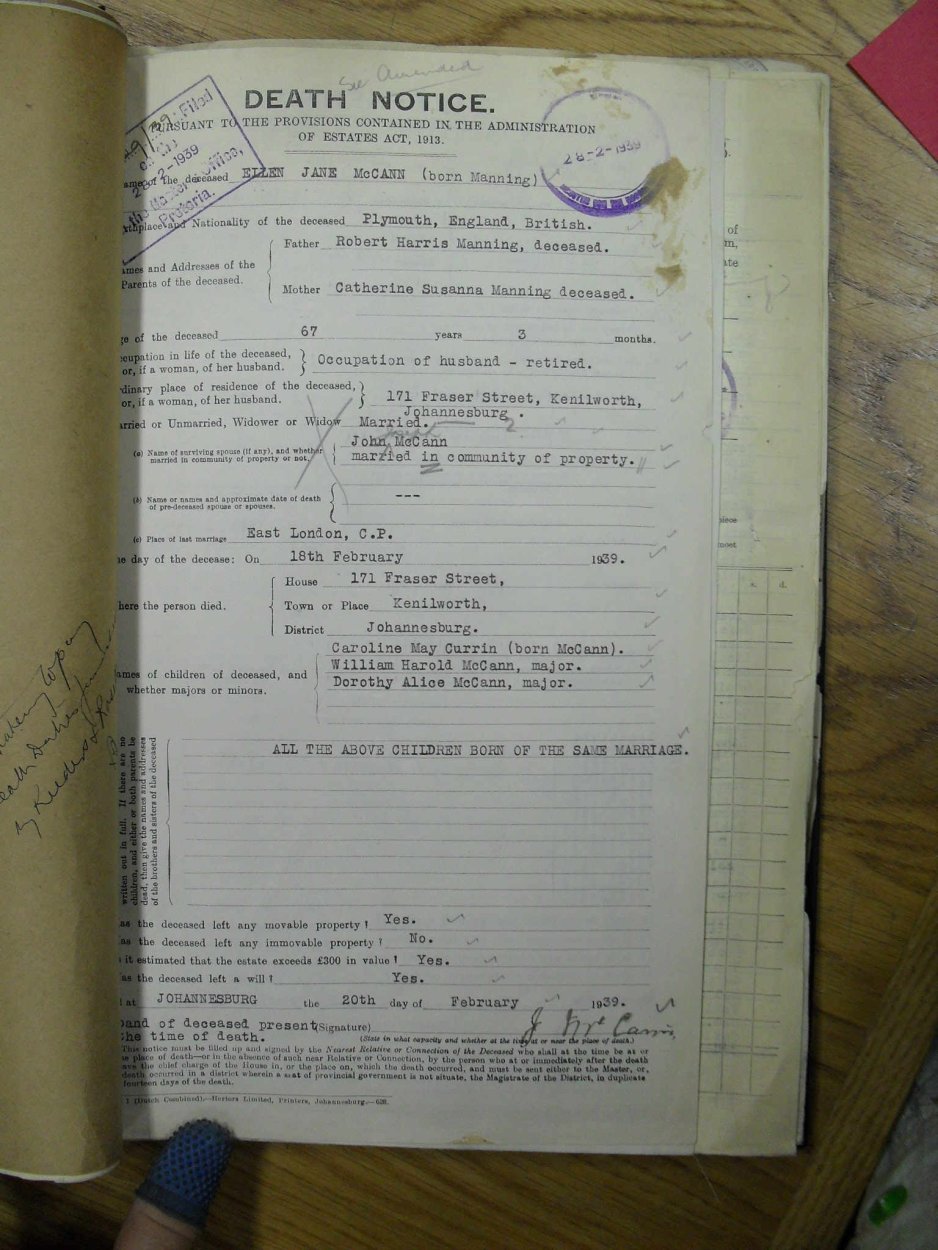 See Amended
DEATH NOTICE.
PURSUANT TO THE PROVISIONS CONTAINED IN THE ADMINISTRATION
OF ESTATES ACT, 1913.
Filed
28-2-1939
the Master's Office,
Pretoria.
28-2-1939
ame of the deceased ELLEN JANE McCANN (born Manning)
thplace and Nationality of the deceased Plymouth, England, British.
ames and Addresses of the
Parents of the deceased.
Father Robert Harris Manning, deceased.
Mother Catherine Susanna Manning deceased.
ge of the deceased 67 years 3 months.
cupation in life of the deceased,
or, if a woman, of her husband.
Occupation of husband - retired.
dinary place of residence of the deceased,
or, if a woman, of her husband.
171 Fraser Street, Kenilworth,
Johannesburg.
arried or Unmarried, Widower or Widow Married.
(a) Name of surviving spouse (if any), and whether
married in community of property or not.
John McCann
married in community of property.
(b) Name or names and approximate date of death
of pre-deceased spouse or spouses.
---
(c) Place of last marriage East London, C.P.
he day of the decease: On 18th February 1939.
here the person died.
House 171 Fraser Street,
Town or Place Kenilworth,
District Johannesburg.
ames of children of deceased, and
whether majors or minors.
Caroline May Currin (born McCann).
William Harold McCann, major.
Dorothy Alice McCann, major.
ALL THE ABOVE CHILDREN BORN OF THE SAME MARRIAGE.
written out in full. If there are no
children, and either or both parents be
dead, then give the names and addresses
of the brothers and sisters of the deceased
as the deceased left any movable property? Yes.
as the deceased left any immovable property? No.
it estimated that the estate exceeds £300 in value? Yes.
as the deceased left a will? Yes.
at JOHANNESBURG the 20th day of February 1939.
band of deceased present (Signature) J McCann
the time of death. (State in what capacity and whether at the time at or near the place of death.)
This notice must be filled up and signed by the Nearest Relative or Connection of the Deceased who shall at the time be at or
e place of death—or in the absence of such near Relative or Connection, by the person who at or immediately after the death
ave the chief charge of the House in, or the place on, which the death occurred, and must be sent either to the Master, or,
death occurred in a district wherein a seat of provincial government is not situate, the Magistrate of the District, in duplicate
fourteen days of the death.
1 (Dutch Combined).—Hortors Limited, Printers, Johannesburg.—628.
of
m,
ate
piece
most
s. d.